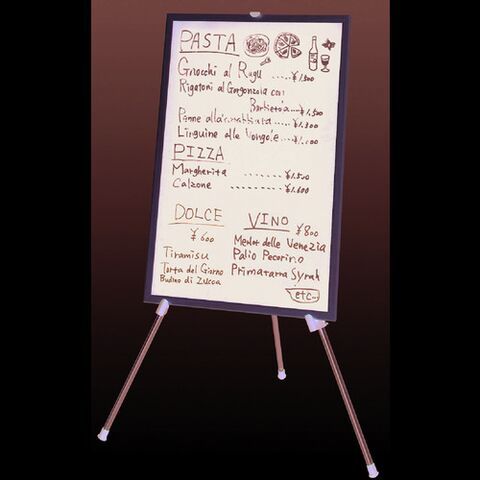 PASTA
Gnocchi al Ragu .....¥1.500
Rigatoni al Gorgonzola con
Barbietola ....¥1.500
Penne alla'arrabbiata....¥1.300
Linguine alle Vongole....
PIZZA
Margherita ........¥1.500
Calzone ........¥1.600
DOLCE
¥600
Tiramisu
Torta del Giorno
Budino di Zucca
VINO ¥800
Merlot delle Venezia
Palio Pecorino
Primaterra Syrah
etc...